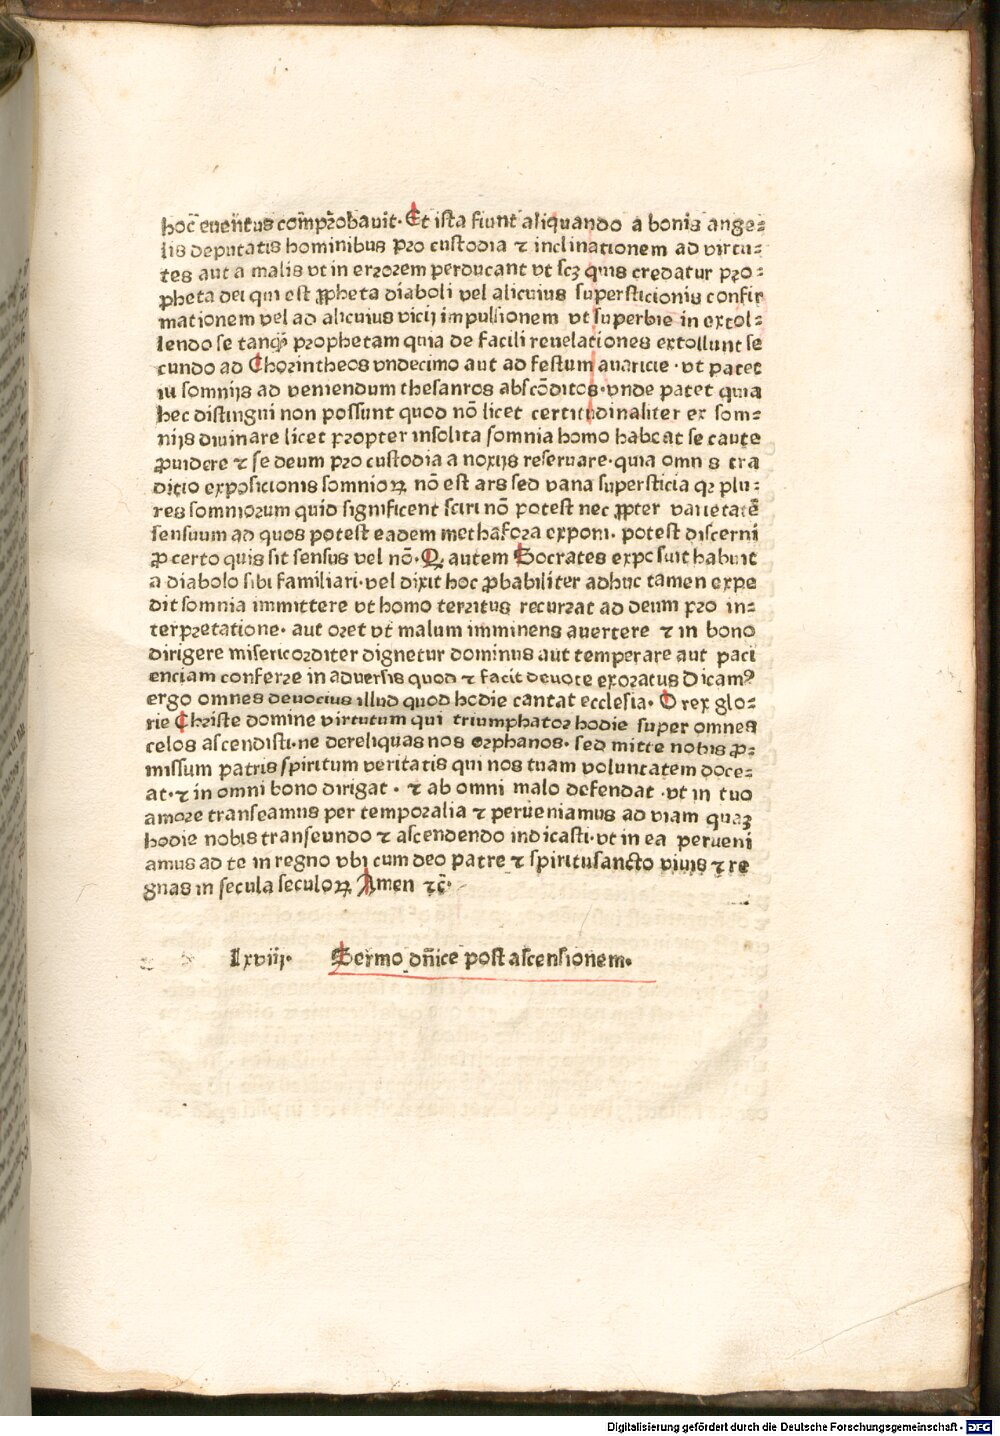 hoc̄ euen̄tus com̄pꝛobauit. Et ista fiunt aliquando a bonis ange⸗
lis deputatis hominibus pꝛo custodia ⁊ inclinationem ad virtu⸗
tes aut a malis vt in erꝛoꝛem perducant vt scꝫ quis credatur pꝛo⸗
pheta dei qui est ꝓpheta diaboli vel alicuius supersticionis confir
mationem vel ad alicuius vicij impulsionem vt superbie in extol⸗
lendo se tanqᷓ pꝛophetam quia de facili reuelationes extollunt se
cundo ad Choꝛintheos vndecimo aut ad festum auaricie . vt patet
iu somnijs ad veniendum thesanros absco̅ditos. vnde patet quia
hec distingui non possunt quod no̅ licet certitudinaliter ex som⸗
nijs diuinare licet pꝛopter insolita somnia homo habeat se caute
ꝓuidere ⁊ se deum pꝛo custodia a noxijs reseruare. quia omn s tra
ditio exposicionis somnioꝝ no̅ est ars sed vana supersticia qꝛ plu⸗
res somnioꝛum quid significent sciri no̅ potest nec ꝓpter varietate̅
sensuum ad quos potest eadem methafoꝛa exponi. potest discerni
ꝓ certo quis sit sensus vel no̅. Qꝝ autem Socrates expc suit habuit
a diabolo sibi familiari. vel dixit hoc ꝓbabiliter adhuc tamen expe
dit somnia immittere vt homo terꝛitus recurꝛat ad deum pꝛo in⸗
terpꝛetatione. aut oꝛet vt malum imminens auertere ⁊ in bono
dirigere misericoꝛditer dignetur dominus aut temperare aut paci
enciam conferꝛe in aduersis quod ⁊ facit deuote exoꝛatus Dicamꝰ
ergo omnes deuocius illud quod hodie cantat ecclesia. O rex glo⸗
rie Christe domine virtutum qui triumphatoꝛ hodie super omnes
celos ascendisti. ne derelíquas nos oꝛphanos. sed mitte nobis ꝓ⸗
missum patris spiritum veritatis qui nos tuam voluntatem doce⸗
at. ⁊ in omni bono dirigat . ⁊ ab omni malo defendat . vt in tuo
amoꝛe transeamus per tempoꝛalia ⁊ perueniamus ad viam quaꝫ
hodie nobis transeundo ⁊ ascendendo indicasti. vt in ea perueni
amus ad te in regno vbi cum deo patre ⁊ spiritusancto viuis ⁊ re
gnas in secula seculoꝝ Amen ⁊c̅.
lxviij. Sermo dn̄ice post ascensionem.
Digitalisierung gefördert durch die Deutsche Forschungsgemeinschaft - DFG